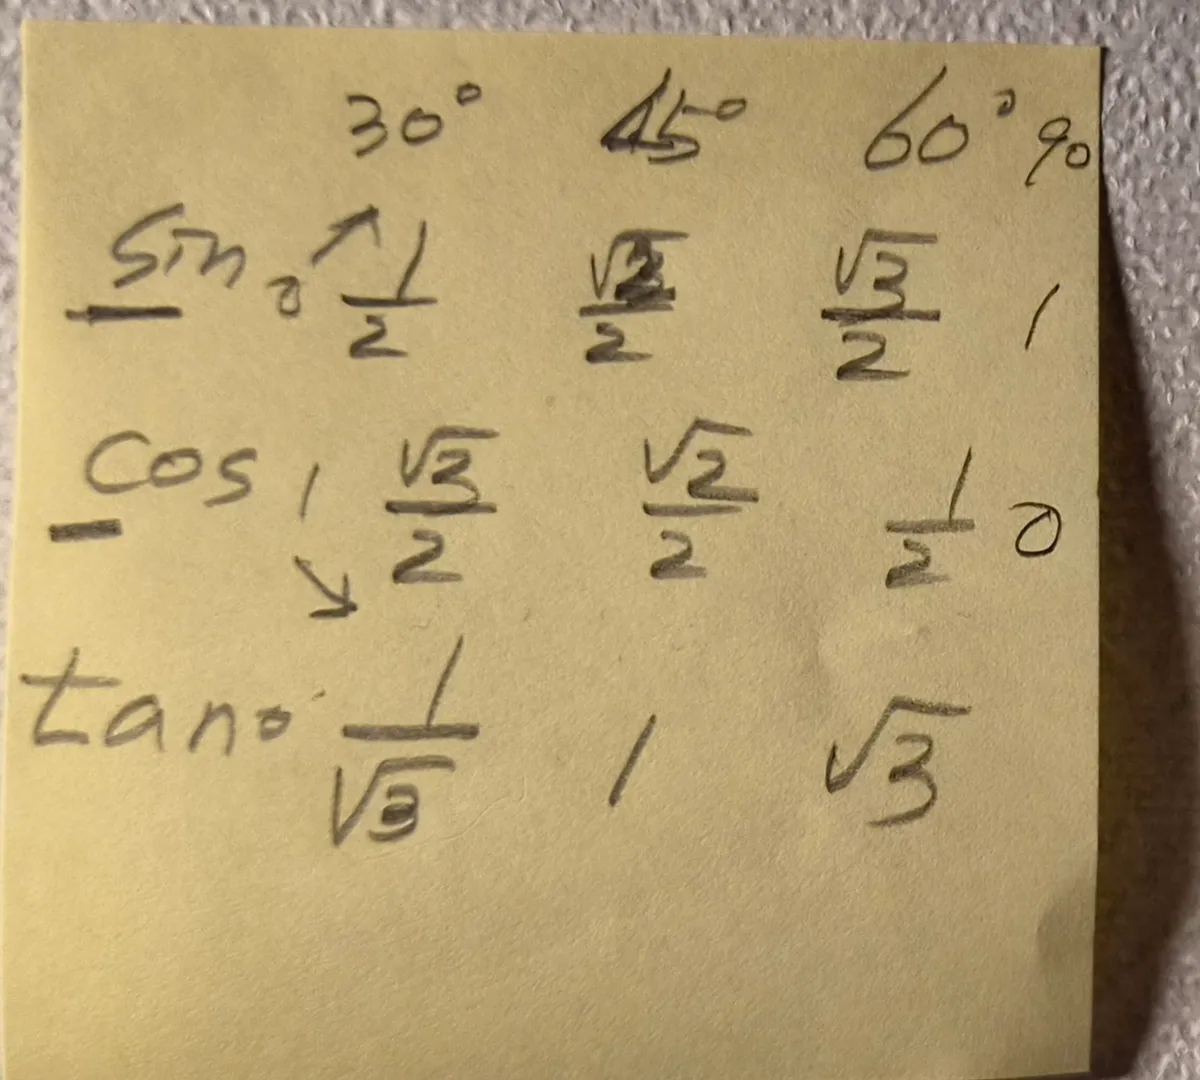 30° 45° 60° 90
sin 0 ↗ 1/2 √2/2 √3/2 1
cos 1 ↘ √3/2 √2/2 1/2 0
tan 0 1/√3 1 √3